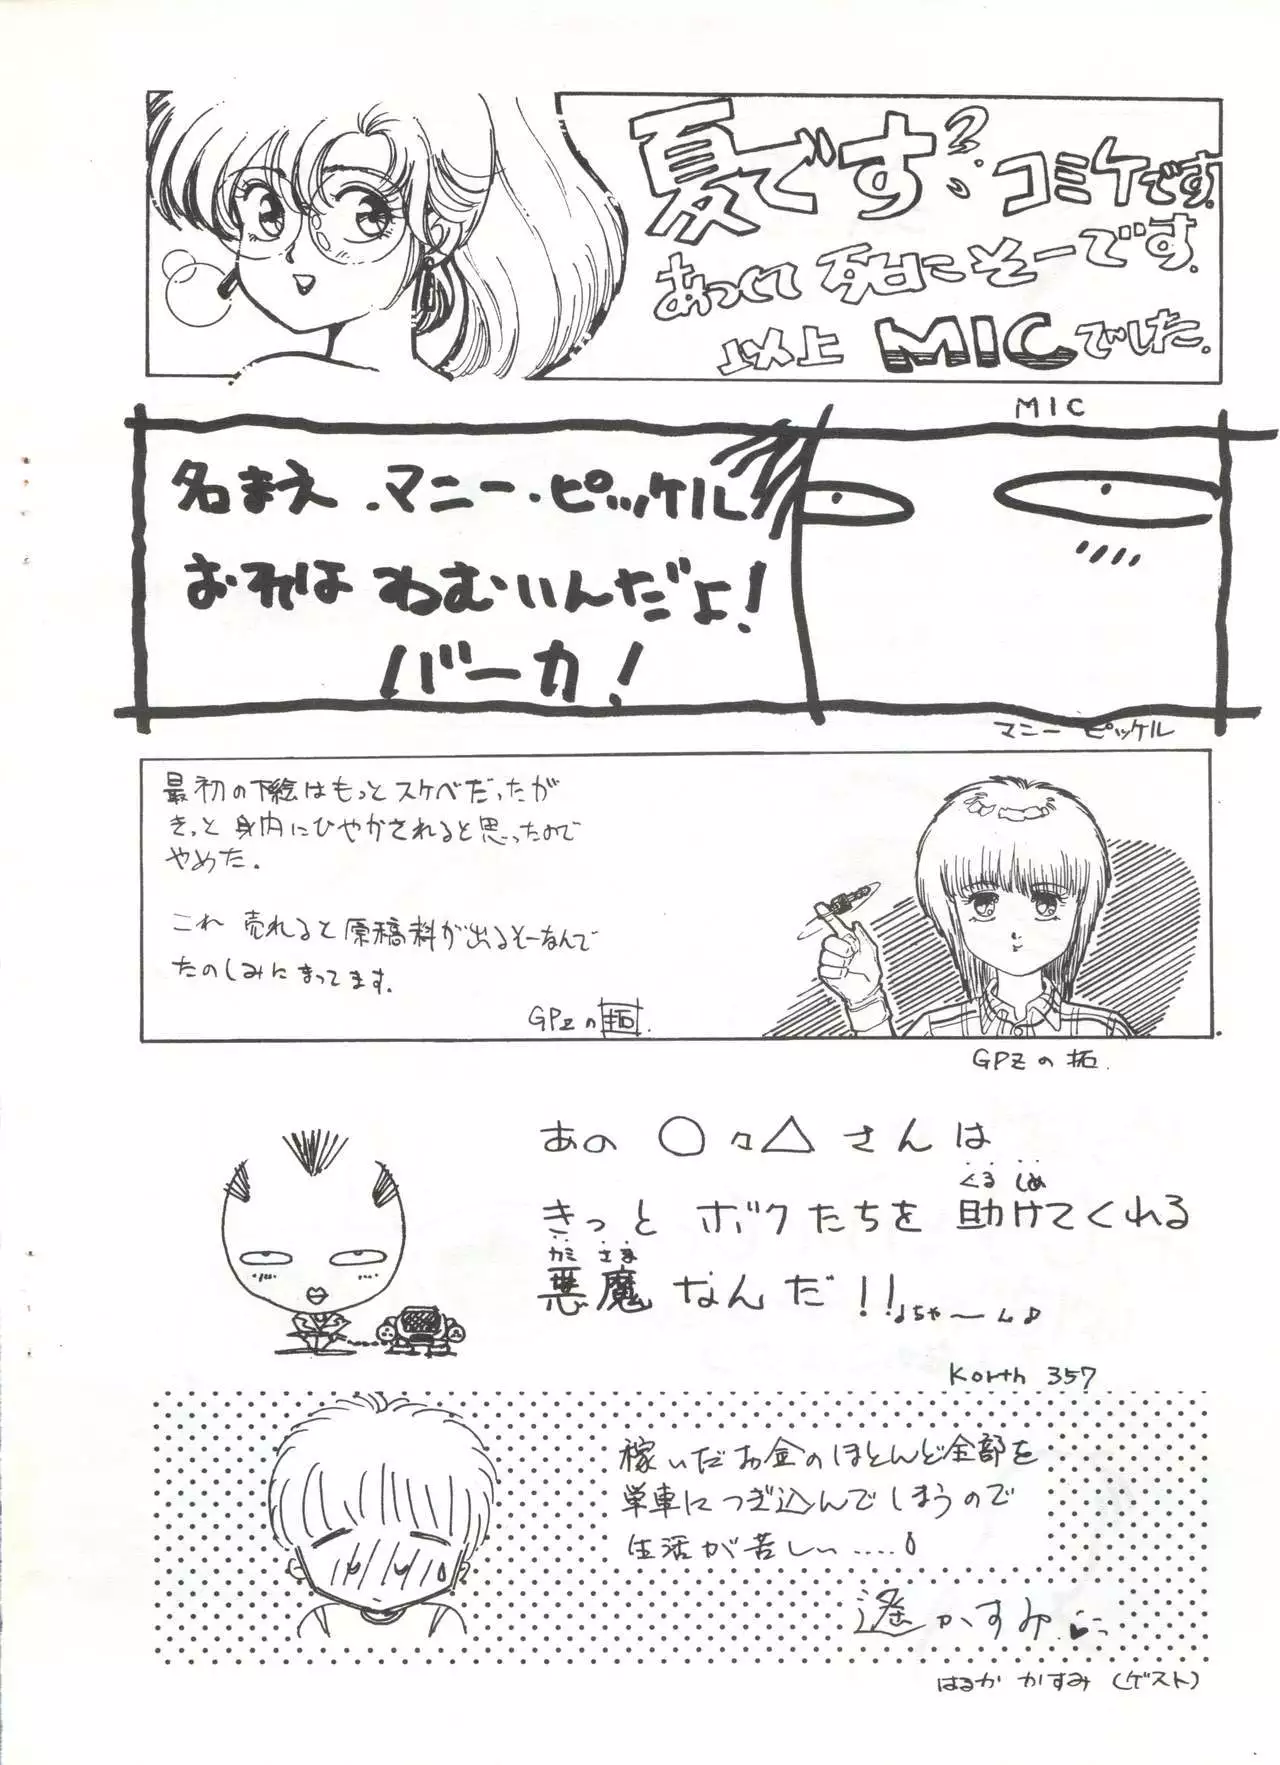 夏です。コミケです。
あつくて死にそーです。
以上 MICでした。
MIC
名まえ.マニー・ピッケル
おれはねむいんだよ!
バーカ!
マニー ピッケル
最初の下絵はもっとスケベだったが
きっと身内にひやかされると思ったので
やめた.
これ売れると原稿料が出るそーなんで
たのしみにまってます.
GPzの拓.
GPzの拓.
あの ○々△さんは
くるしめ
きっと ボクたちを 助けてくれる
かミ さま
悪魔なんだ!!
Korth 357
稼いだお金のほとんど全部を
単車につぎ込んでしまうので
生活が苦しい.....
遙かすみ
はるか かすみ (ゲスト)